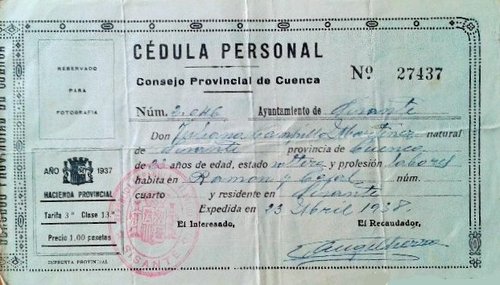 CÉDULA PERSONAL
Consejo Provincial de Cuenca
Nº 27437
RESERVADO
PARA
FOTOGRAFIA
Núm. 2.046 Ayuntamiento de Sisante
Don Martínez natural
de Sisante provincia de Cuenca
de años de edad, estado soltera y profesión labores
habita en Ramon y Cajal núm.
cuarto y residente en Sisante
Expedida en 23 Abril 1938
El Interesado, El Recaudador,
AÑO 1937
HACIENDA PROVINCIAL
Tarifa 3ª Clase 13ª
Precio 1,00 pesetas
IMPRENTA PROVINCIAL
SISANTE